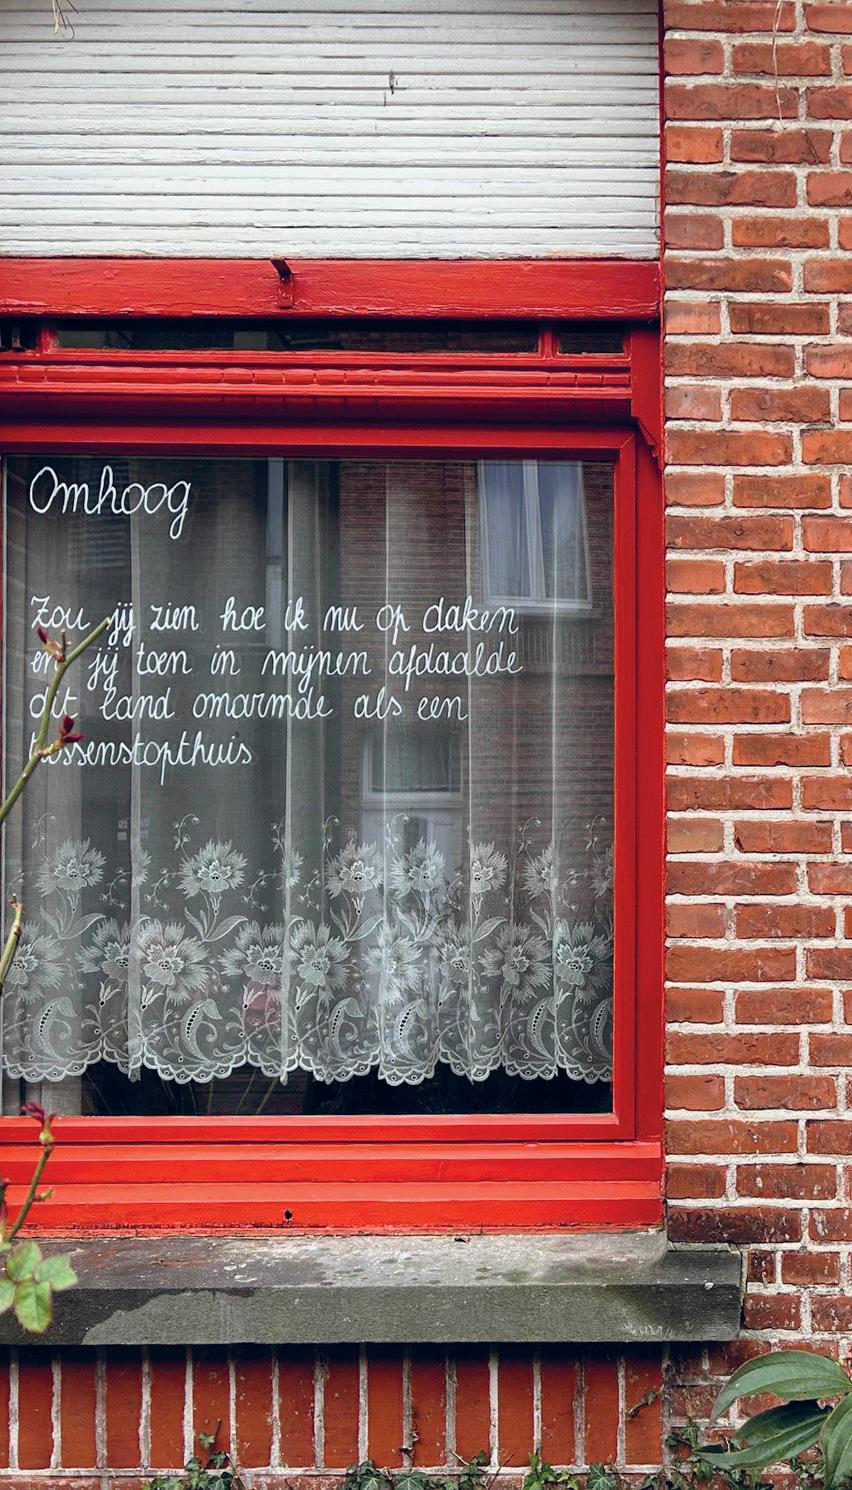 Omhoog
Zou jij zien hoe ik nu op daken
en jij toen in mijnen afdaalde
dit land omarmde als een
tussenstopthuis